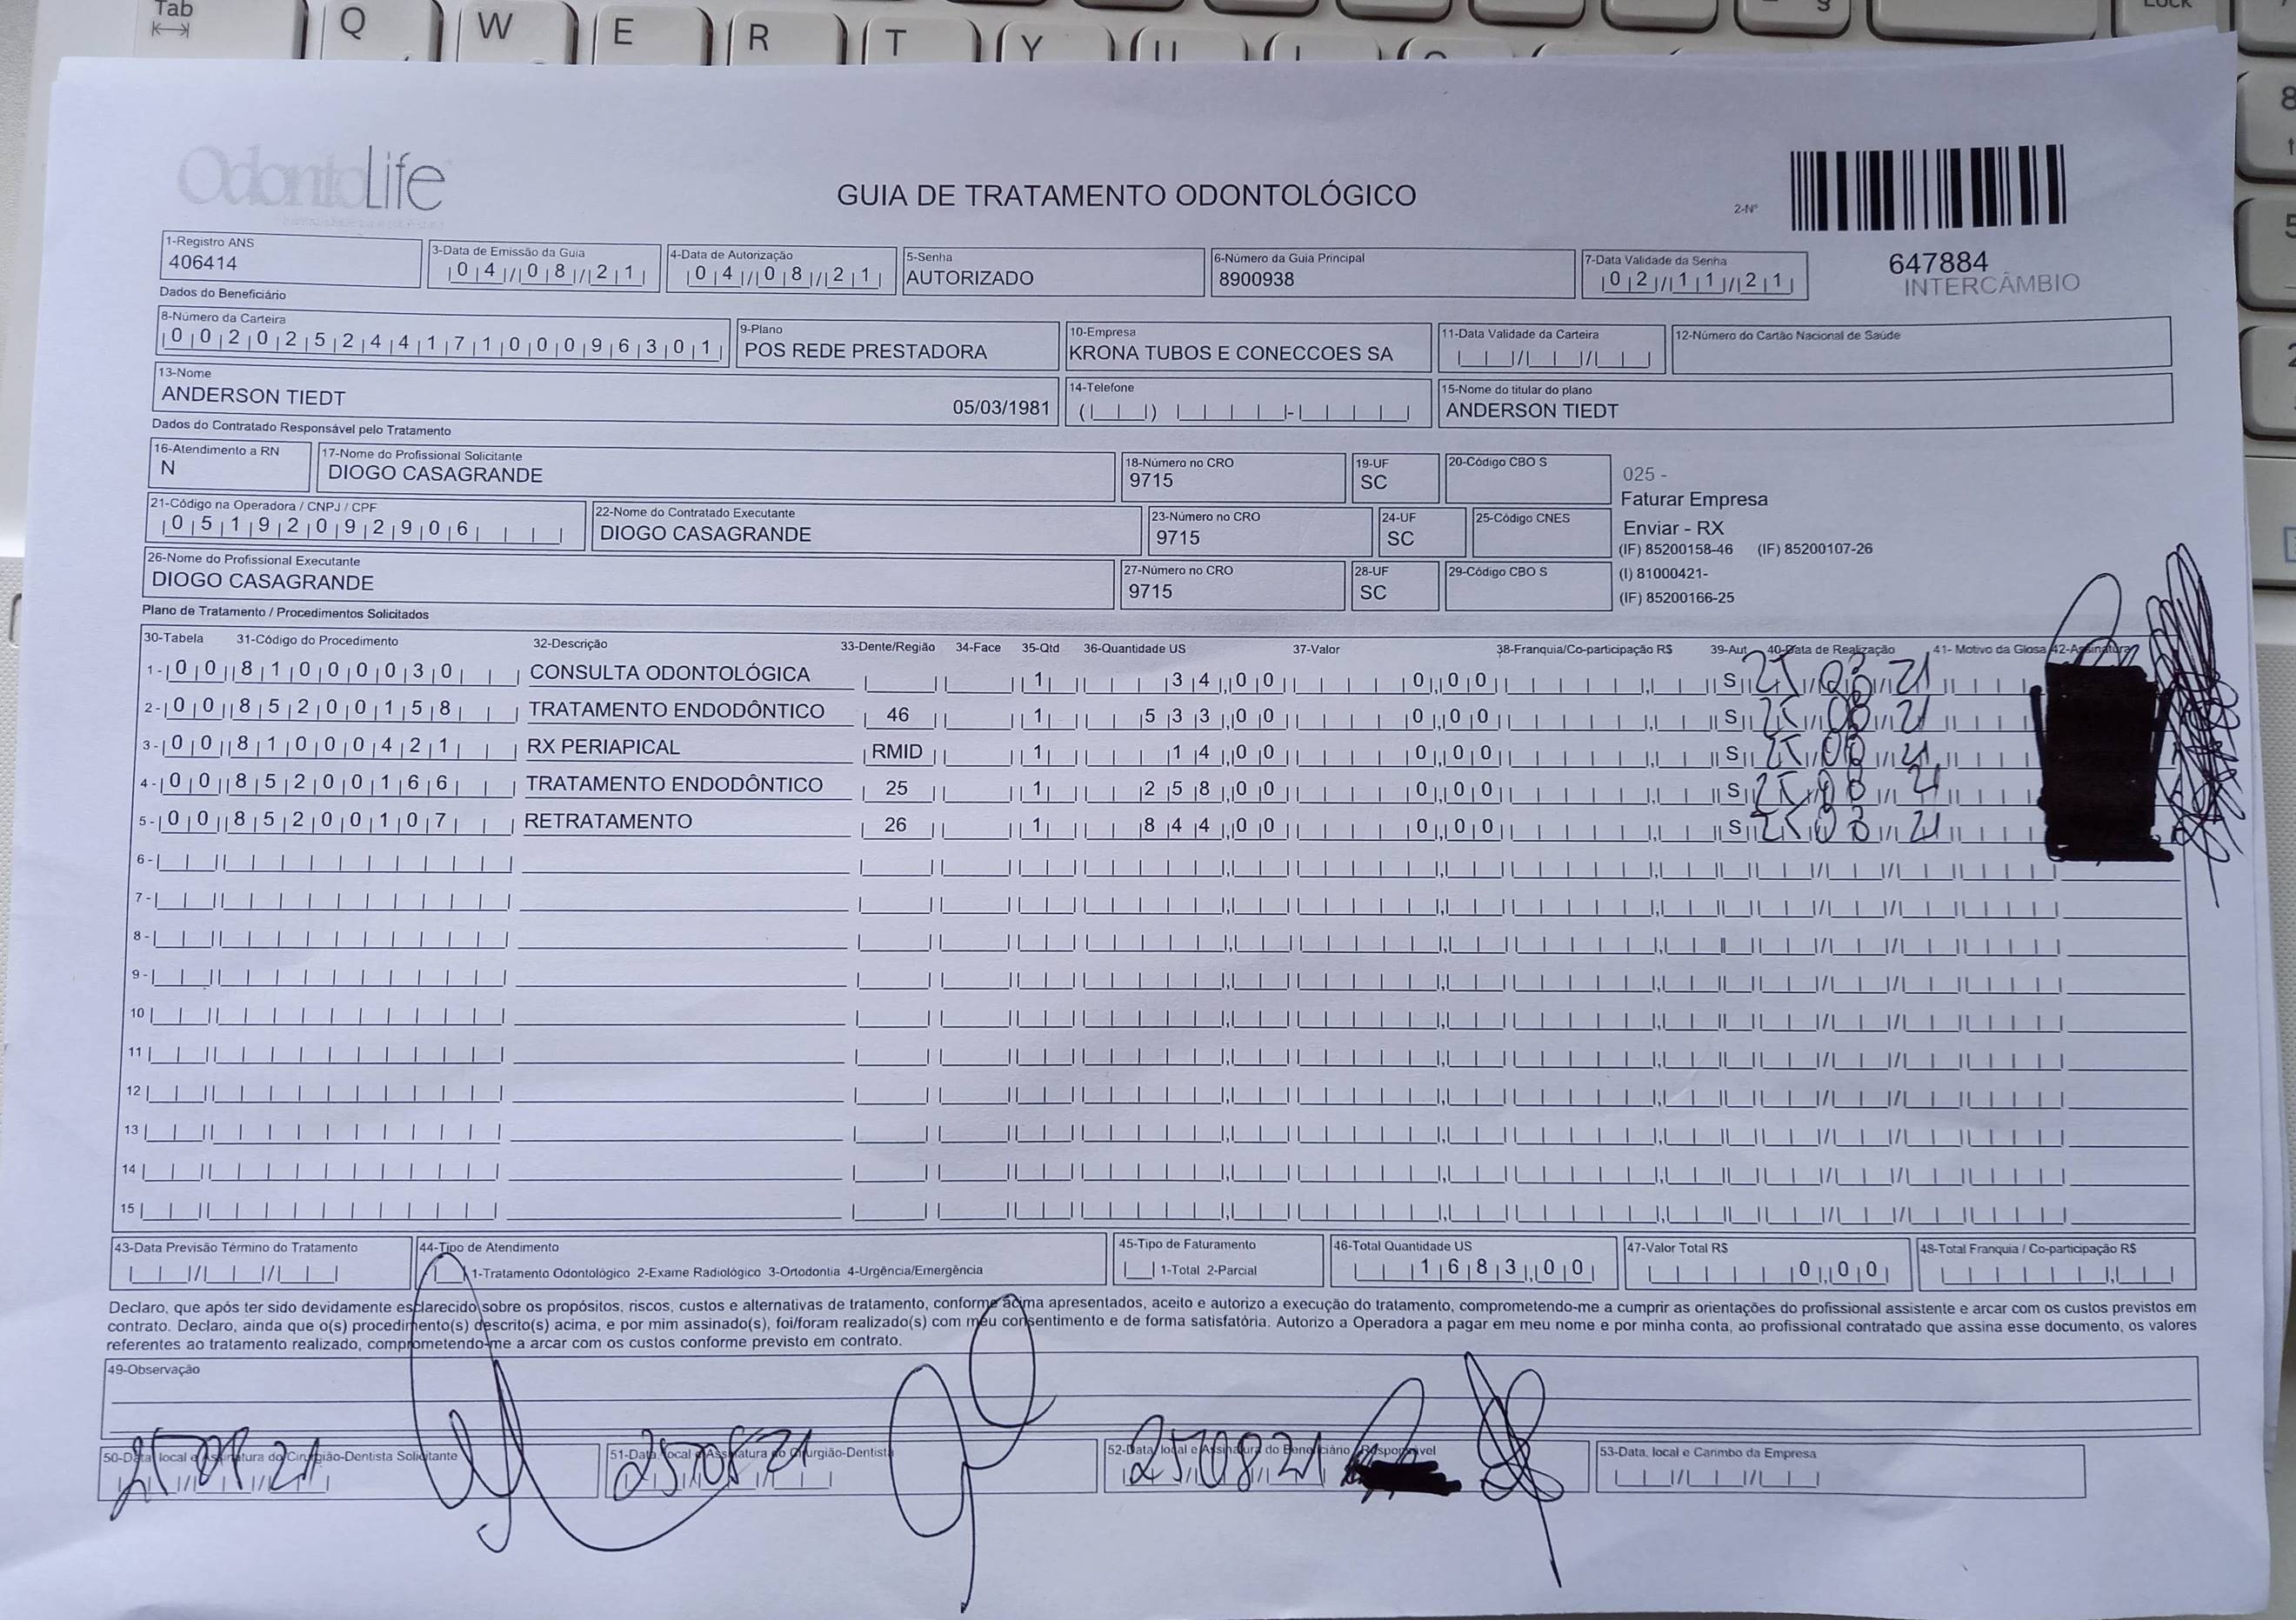 Tab
Q W E R T Y U
OdontoLife
GUIA DE TRATAMENTO ODONTOLÓGICO
2-Nº
647884
INTERCÂMBIO
1-Registro ANS
406414
3-Data de Emissão da Guia
04/08/21
4-Data de Autorização
04/08/21
5-Senha
AUTORIZADO
6-Número da Guia Principal
8900938
7-Data Validade da Senha
02/11/21
Dados do Beneficiário
8-Número da Carteira
00202524417100096301
9-Plano
POS REDE PRESTADORA
10-Empresa
KRONA TUBOS E CONECCOES SA
11-Data Validade da Carteira
12-Número do Cartão Nacional de Saúde
13-Nome
ANDERSON TIEDT 05/03/1981
14-Telefone
15-Nome do titular do plano
ANDERSON TIEDT
Dados do Contratado Responsável pelo Tratamento
16-Atendimento a RN
N
17-Nome do Profissional Solicitante
DIOGO CASAGRANDE
18-Número no CRO
9715
19-UF
SC
20-Código CBO S
21-Código na Operadora / CNPJ / CPF
05192092906
22-Nome do Contratado Executante
DIOGO CASAGRANDE
23-Número no CRO
9715
24-UF
SC
25-Código CNES
26-Nome do Profissional Executante
DIOGO CASAGRANDE
27-Número no CRO
9715
28-UF
SC
29-Código CBO S
025 -
Faturar Empresa
Enviar - RX
(IF) 85200158-46 (IF) 85200107-26
(I) 81000421-
(IF) 85200166-25
Plano de Tratamento / Procedimentos Solicitados
30-Tabela 31-Código do Procedimento 32-Descrição 33-Dente/Região 34-Face 35-Qtd 36-Quantidade US 37-Valor 38-Franquia/Co-participação R$ 39-Aut 40-Data de Realização 41- Motivo da Glosa 42-Assinatura
1- 00 81000030 CONSULTA ODONTOLÓGICA 1 34,00 0,00 S 25 08 21
2- 00 85200158 TRATAMENTO ENDODÔNTICO 46 1 533,00 0,00 S 25 08 21
3- 00 81000421 RX PERIAPICAL RMID 1 14,00 0,00 S 25 08 21
4- 00 85200166 TRATAMENTO ENDODÔNTICO 25 1 258,00 0,00 S 25 08 21
5- 00 85200107 RETRATAMENTO 26 1 844,00 0,00 S 25 08 21
6-
7-
8-
9-
10
11
12
13
14
15
43-Data Previsão Término do Tratamento
44-Tipo de Atendimento
1-Tratamento Odontológico 2-Exame Radiológico 3-Ortodontia 4-Urgência/Emergência
45-Tipo de Faturamento
1-Total 2-Parcial
46-Total Quantidade US
1683,00
47-Valor Total R$
0,00
48-Total Franquia / Co-participação R$
Declaro, que após ter sido devidamente esclarecido sobre os propósitos, riscos, custos e alternativas de tratamento, conforme acima apresentados, aceito e autorizo a execução do tratamento, comprometendo-me a cumprir as orientações do profissional assistente e arcar com os custos previstos em
contrato. Declaro, ainda que o(s) procedimento(s) descrito(s) acima, e por mim assinado(s), foi/foram realizado(s) com meu consentimento e de forma satisfatória. Autorizo a Operadora a pagar em meu nome e por minha conta, ao profissional contratado que assina esse documento, os valores
referentes ao tratamento realizado, comprometendo-me a arcar com os custos conforme previsto em contrato.
49-Observação
50-Data, local e Assinatura do Cirurgião-Dentista Solicitante
25 08 21
51-Data, local e Assinatura do Cirurgião-Dentista
25 08 21
52-Data, local e Assinatura do Beneficiário / Responsável
25 08 21
53-Data, local e Carimbo da Empresa